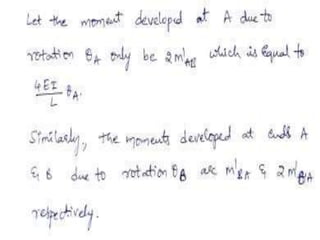 Let the moment developed at A due to
rotation θA only be 2m'AB which is equal to
4EI/L θA.
Similarly, the moments developed at ends A
& B due to rotation θB are m'BA & 2m'BA
respectively.